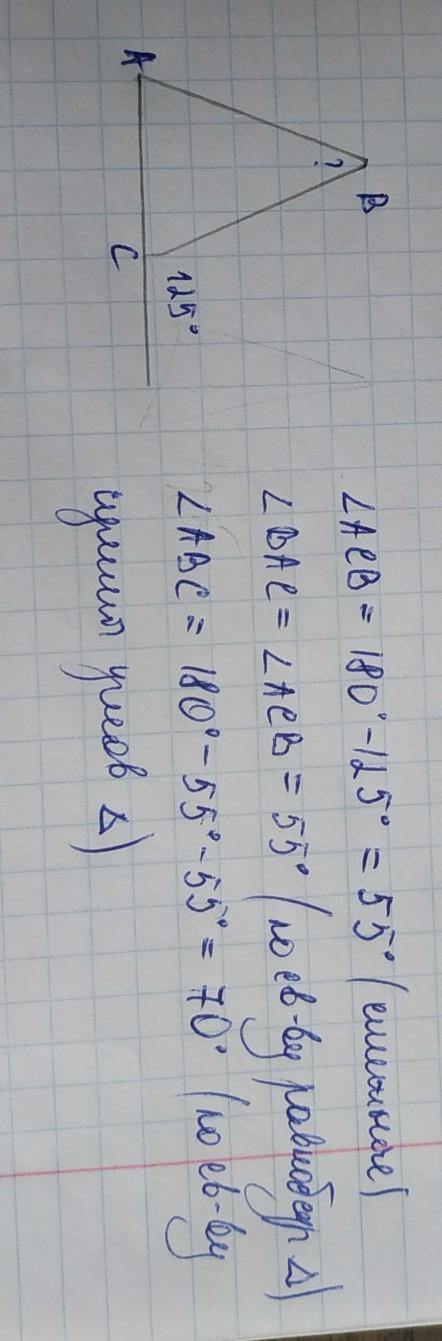 A
B
?
C
125°
∠ACB = 180° - 125° = 55° (смежные)
∠BAC = ∠ACB = 55° (по св-ву равнобедр Δ)
∠ABC = 180° - 55° - 55° = 70° (по св-ву
суммы углов Δ)